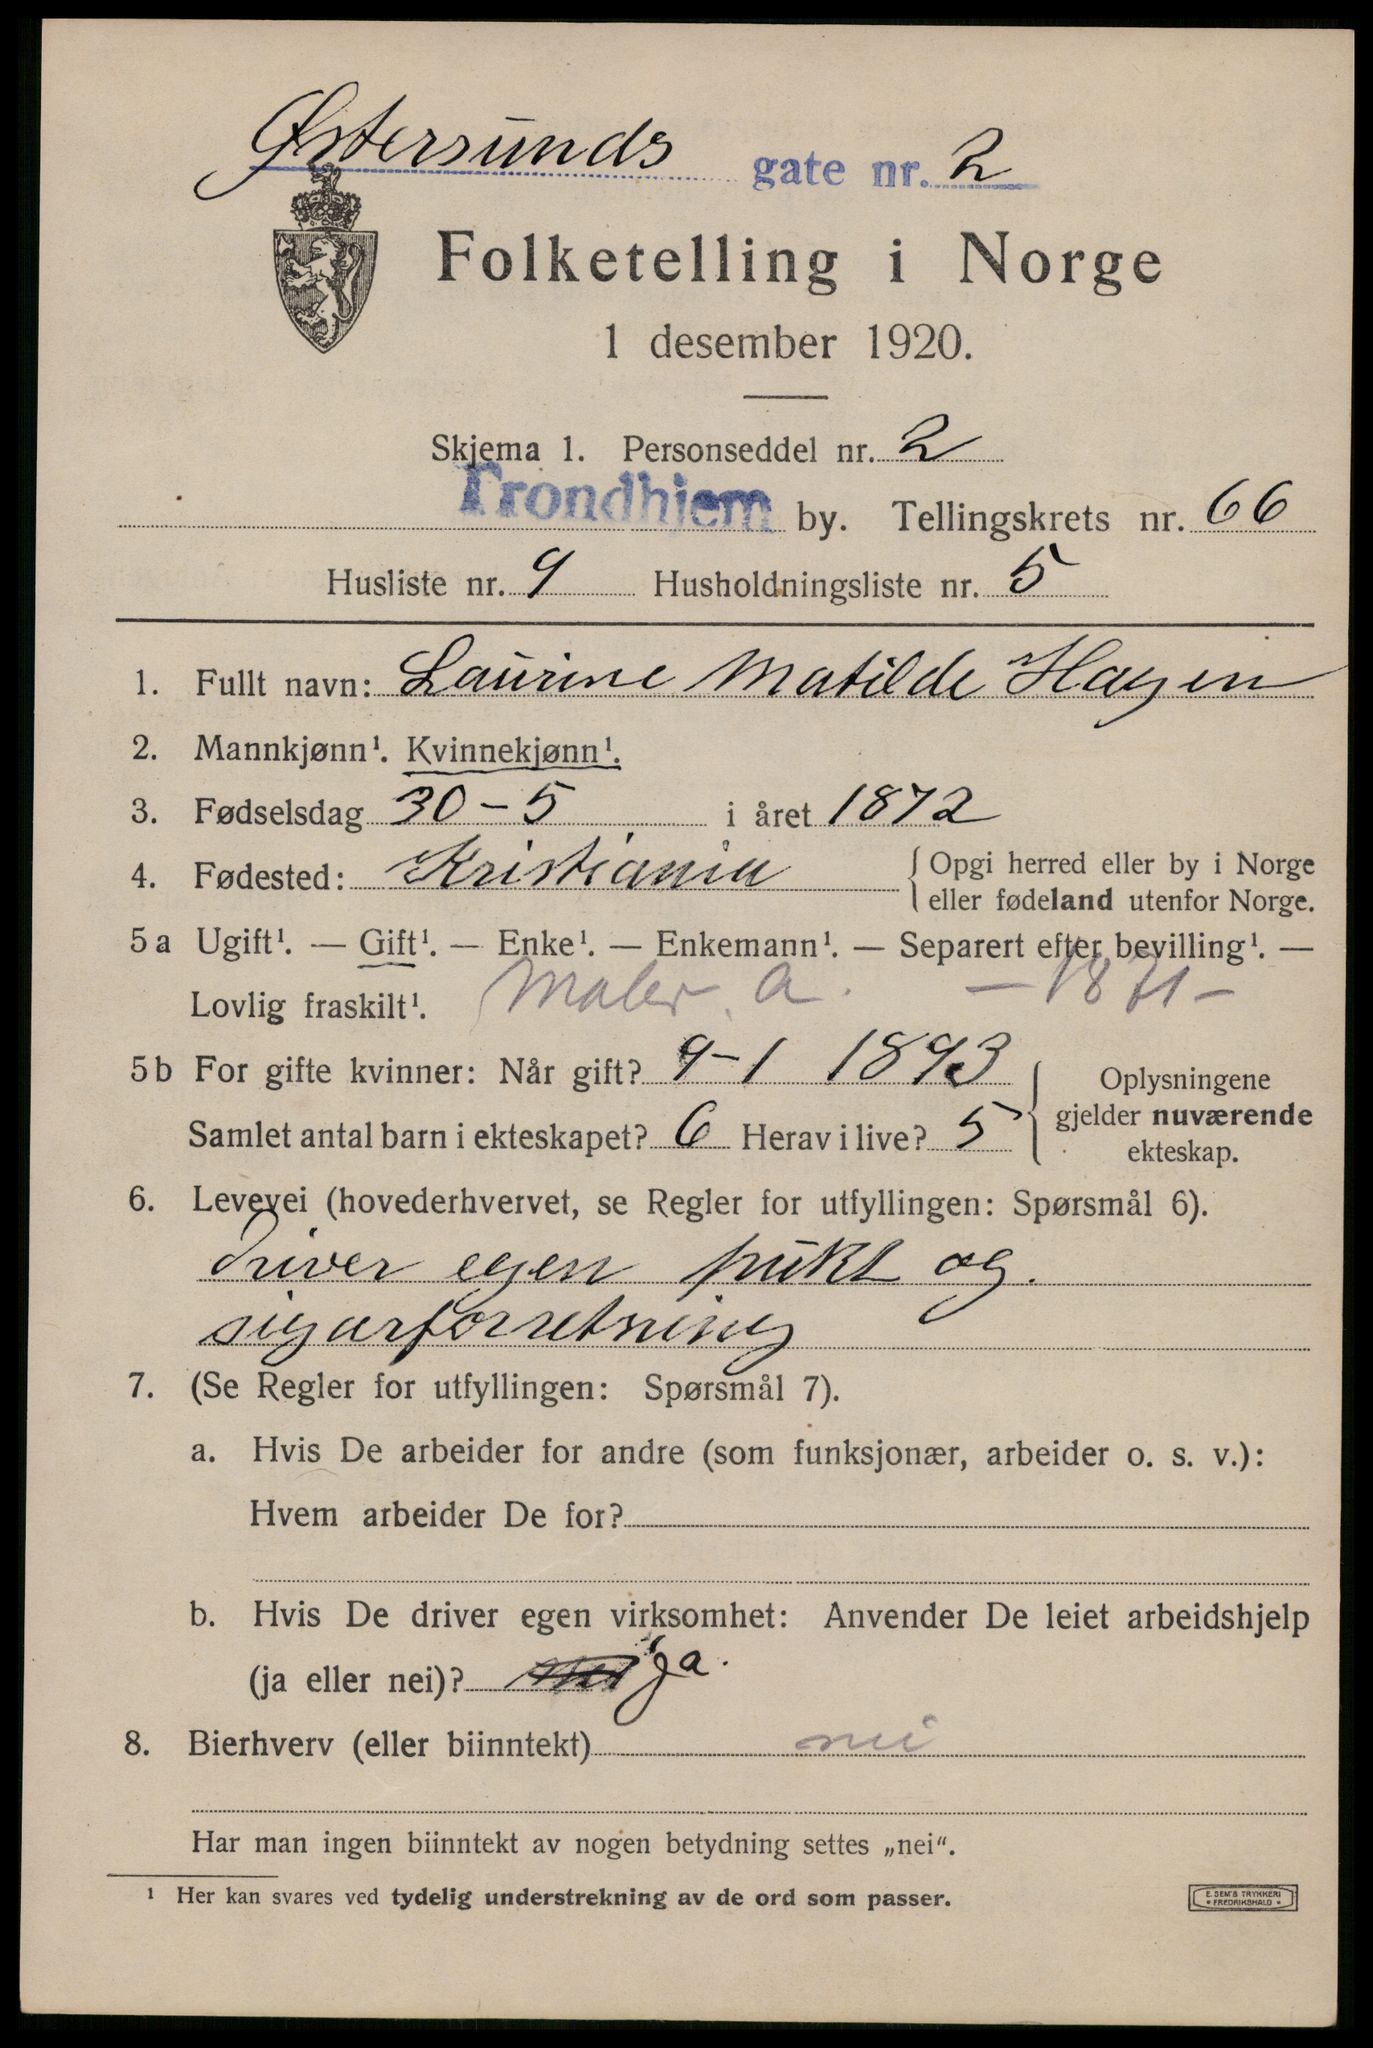 Østersunds gate nr. 2
Folketelling i Norge
1 desember 1920.
Skjema 1. Personseddel nr. 2
Trondhjem by. Tellingskrets nr. 66
Husliste nr. 9 Husholdningsliste nr. 5
1. Fullt navn: Laurine Matilde Hagen
2. Mannkjønn¹. Kvinnekjønn¹.
3. Fødselsdag 30-5 i året 1872
4. Fødested: Kristiania { Opgi herred eller by i Norge
eller fødeland utenfor Norge.
5a Ugift¹. — Gift¹. — Enke¹. — Enkemann¹. — Separert efter bevilling¹. —
Lovlig fraskilt¹. Maler a. - 1871 -
5b For gifte kvinner: Når gift? 9-1 1893 Oplysningene
gjelder nuværende
Samlet antal barn i ekteskapet? 6 Herav i live? 5 ekteskap.
6. Levevei (hovederhvervet, se Regler for utfyllingen: Spørsmål 6).
driver egen frukt og
sigarforretning
7. (Se Regler for utfyllingen: Spørsmål 7).
a. Hvis De arbeider for andre (som funksjonær, arbeider o. s. v.):
Hvem arbeider De for?
b. Hvis De driver egen virksomhet: Anvender De leiet arbeidshjelp
(ja eller nei)? ja.
8. Bierhverv (eller biinntekt) nei
Har man ingen biinntekt av nogen betydning settes „nei“.
¹ Her kan svares ved tydelig understrekning av de ord som passer.
E. SEM'S TRYKKERI
* FREDRIKSHALD *